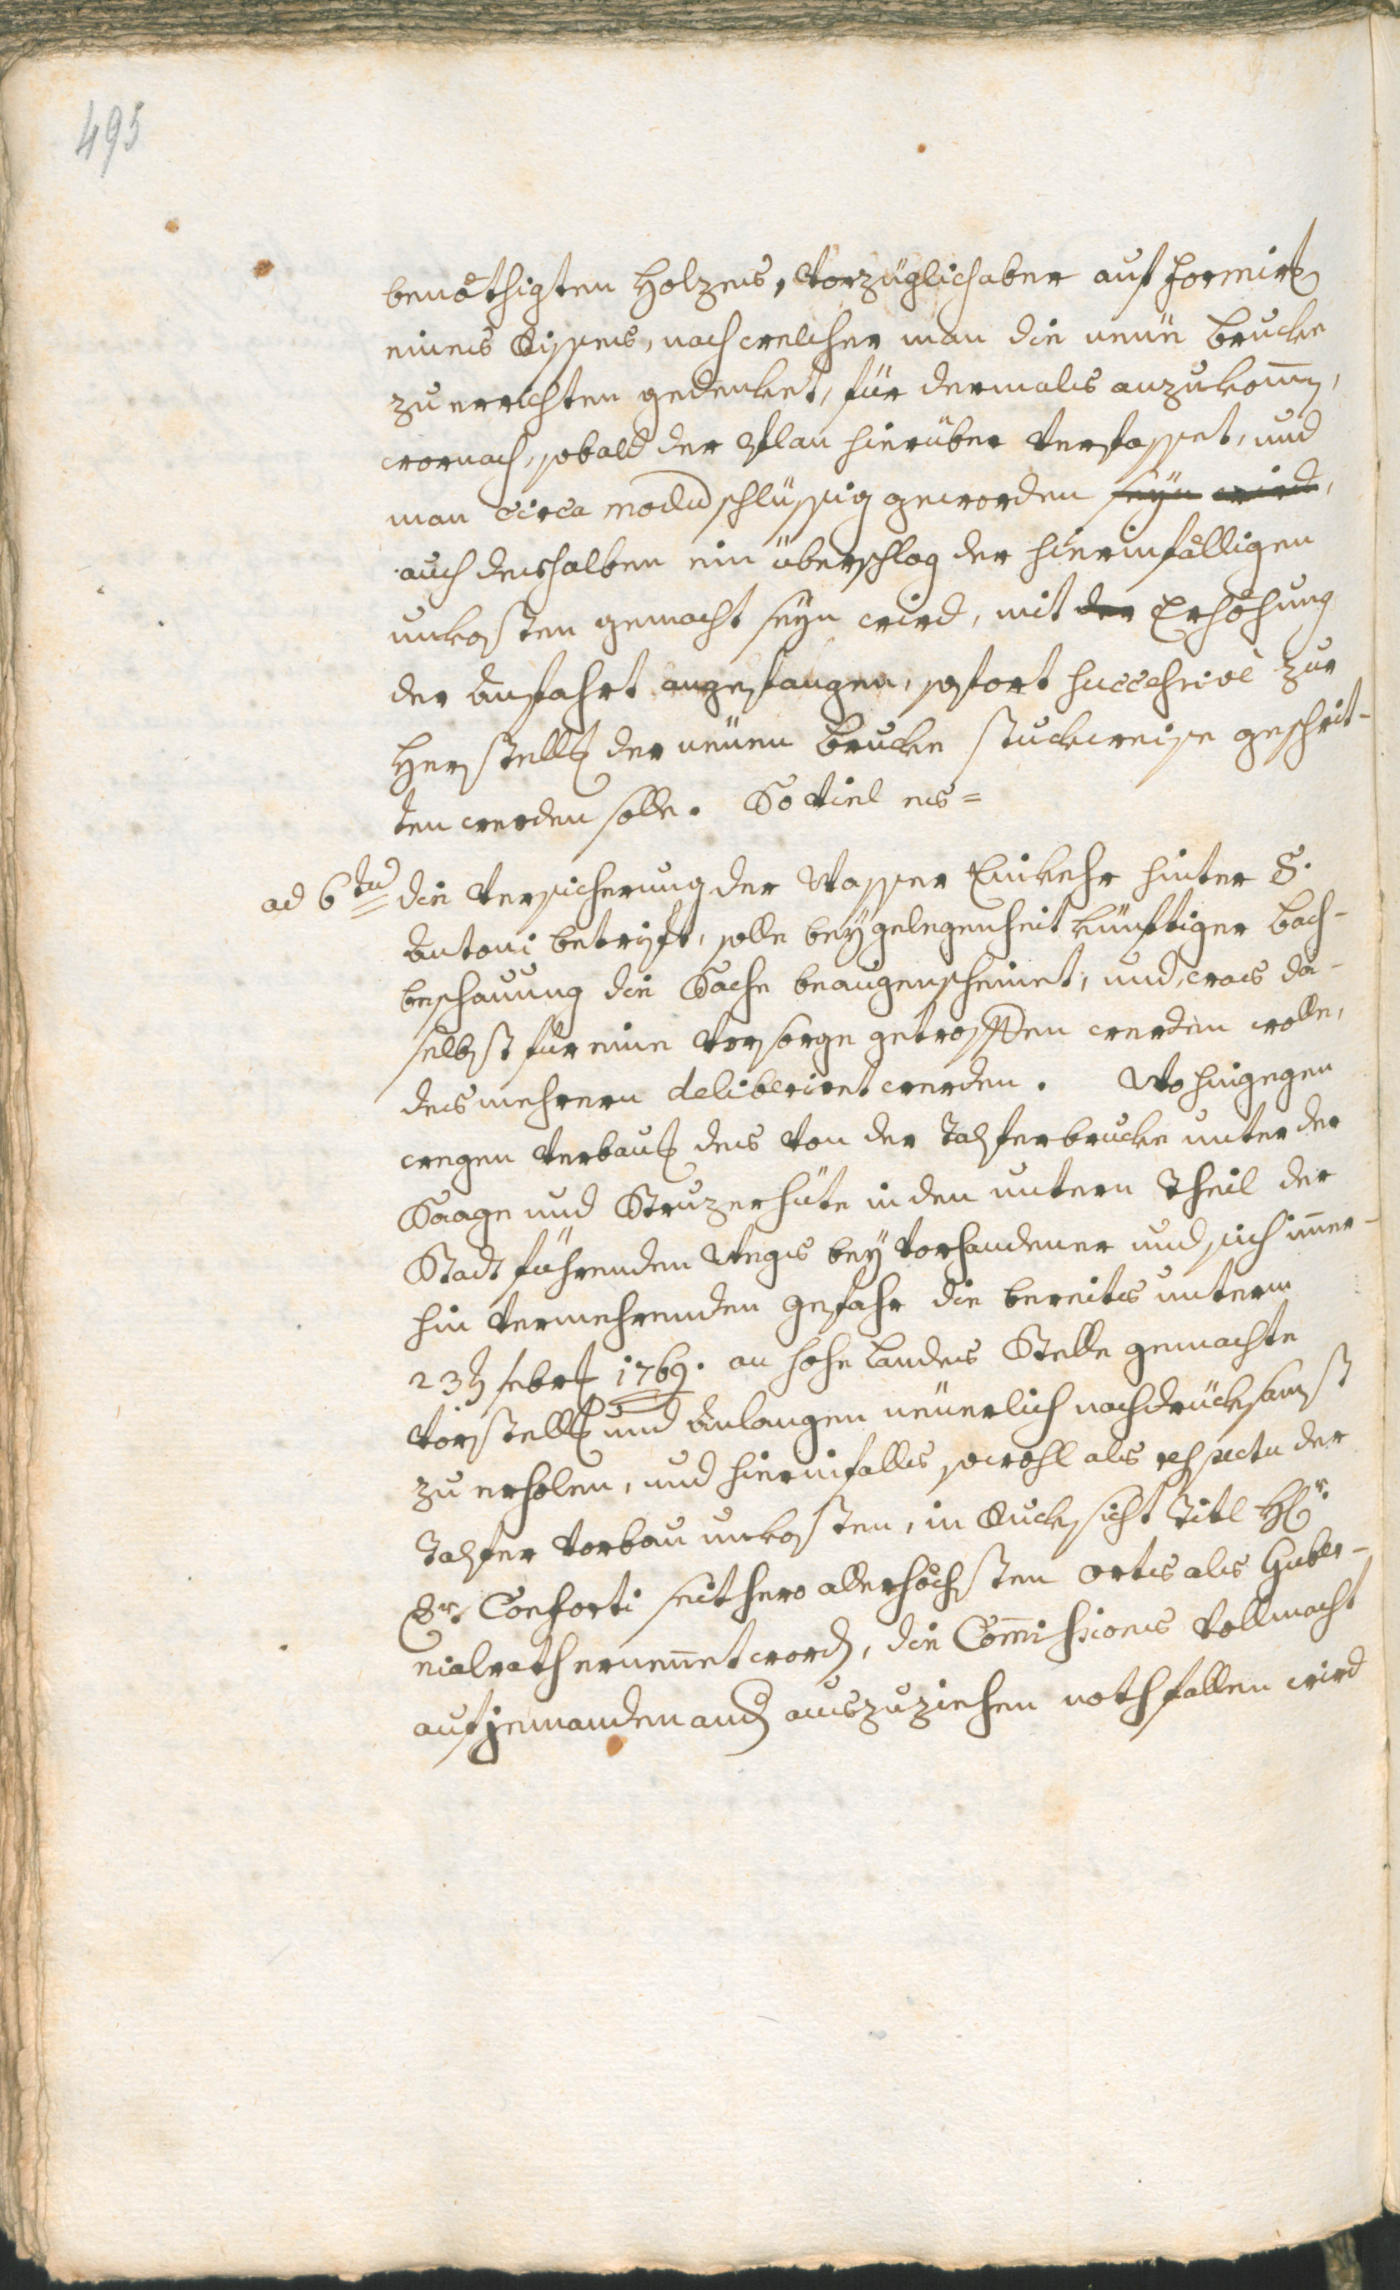 495
benöthigten Holzes, vorzüglich aber auf Formir[ung]
eines Risses, nach welcher man die neue Brucke
zu errichten gedenket, für dermals anzukom[m]en,
wornach, sobald der Plan hierüber verfasset, und
man circa modu[m] schlüssig geworden seyn wird,
auch deshalben ein überschlag der hierinfälligen
unkosten gemacht seyn wird, mit der Erhöhung
der Anfahrt angefangen, sofort successive zur
Herstell[ung] der neuen Brucke stuckweise geschrit-
ten werden solle. So viel es=
ad 6tu[m] die Versicherung der Wasser Einkehr hinter S.
Antoni betrifft, solle bey gelegenheit künftiger Bach-
beschauung die Sache beaugenscheinet, und, was da-
selbst für eine Vorsorge getroffen werden wolle,
des mehrern deliberiret werden. Wo hingegen
wegen Verbau[ung] des von der Talferbrucke unter der
Saage und Struzerhüte in den untern Theil der
Stadt führenden Weges bey vorhandener und sich im[m]er-
hin vermehrenden gefahr die bereits unterm
23t[en] febr[uar] 1769. an hohe Landes Stelle gemachte
Vorstell[ung] und Anlangen neuerlich nachdrücksamst
zu erholen, und hierinfalls sowohl als respectu der
Talfer Vorbau unkosten, in Rucksicht Titl H[er]r
Dr. Conforti seithero allerhöchsten Orts als Guber-
nialrath ernen[n]et word[en], die Com[m]issions Vollmacht
auf jemanden and[ern] auszuziehen noth fallen wird